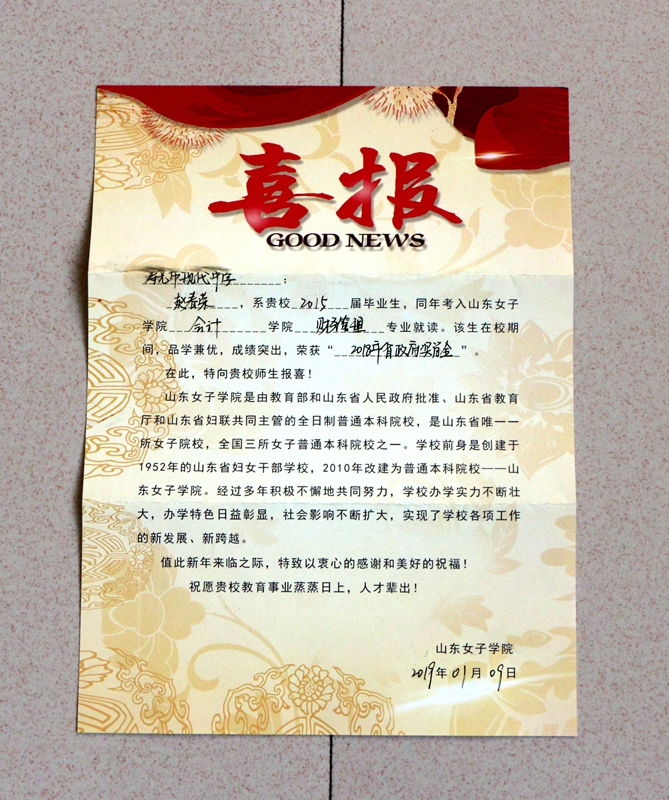 喜报
GOOD NEWS
寿光市现代中学:
赵春荣,系贵校2015届毕业生,同年考入山东女子
学院会计学院财务管理专业就读。该生在校期
间,品学兼优,成绩突出,荣获“2018年省政府奖学金”。
在此,特向贵校师生报喜!
山东女子学院是由教育部和山东省人民政府批准、山东省教育
厅和山东省妇联共同主管的全日制普通本科院校,是山东省唯一一
所女子院校,全国三所女子普通本科院校之一。学校前身是创建于
1952年的山东省妇女干部学校,2010年改建为普通本科院校——山
东女子学院。经过多年积极不懈地共同努力,学校办学实力不断壮
大,办学特色日益彰显,社会影响不断扩大,实现了学校各项工作
的新发展、新跨越。
值此新年来临之际,特致以衷心的感谢和美好的祝福!
祝愿贵校教育事业蒸蒸日上,人才辈出!
山东女子学院
2019年01月09日